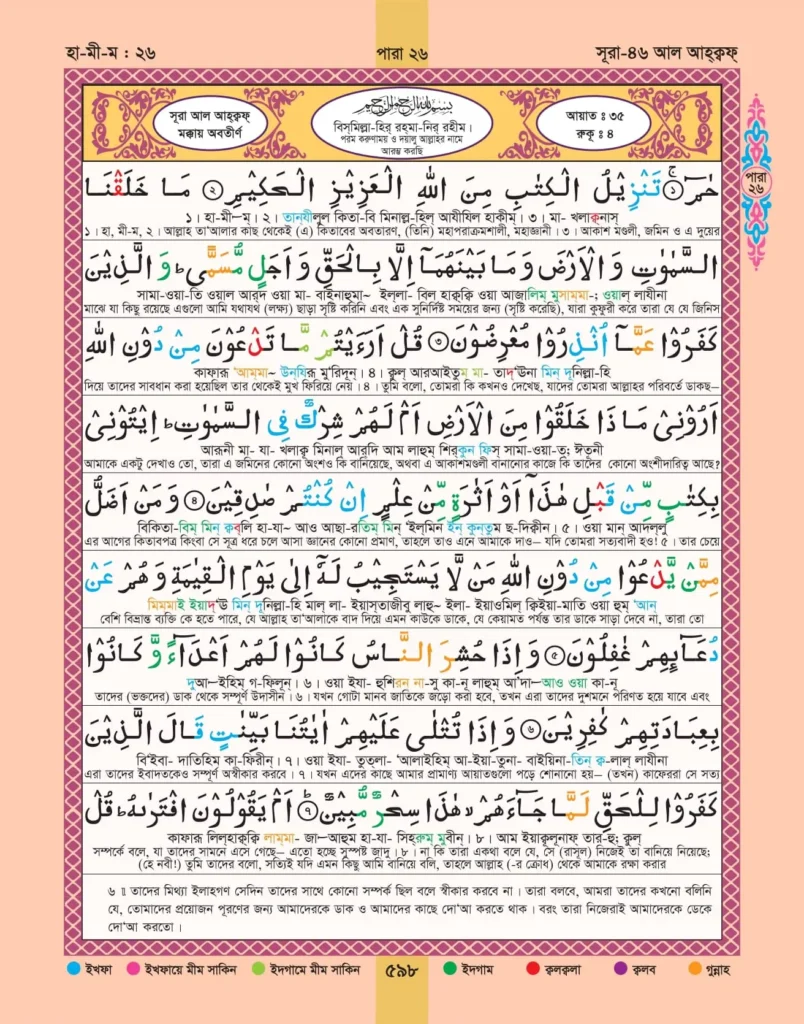 হা-মী-ম : ২৬
পারা ২৬
সূরা-৪৬ আল আহ্ক্বফ্
সূরা আল আহ্ক্বফ্
মক্কায় অবতীর্ণ
بِسْمِ اللهِ الرَّحْمٰنِ الرَّحِيْمِ
বিস্‌মিল্লা-হির্ রহমা-নির্ রহীম।
পরম করুণাময় ও দয়ালু আল্লাহর নামে
আরম্ভ করছি
আয়াত : ৩৫
রুকূ : ৪
পারা
২৬
حٰمٓ ۚ﴿۱﴾ تَنْزِيْلُ الْكِتٰبِ مِنَ اللهِ الْعَزِيْزِ الْحَكِيْمِ ﴿۲﴾ مَا خَلَقْنَا
১। হা-মী—ম্। ২। তান্‌যীলুল কিতা-বি মিনাল্ল-হিল্ আযীযিল হাকীম্। ৩। মা- খলাক্বনাস্
১। হা, মী-ম, ২। আল্লাহ তা'আলার কাছ থেকেই (এ) কিতাবের অবতারণ, (তিনি) মহাপরাক্রমশালী, মহাজ্ঞানী। ৩। আকাশ মণ্ডলী, জমিন ও এ দুয়ের
السَّمٰوٰتِ وَالْاَرْضَ وَمَا بَيْنَهُمَآ اِلَّا بِالْحَقِّ وَاَجَلٍ مُّسَمًّى ؕ وَالَّذِيْنَ
সামা-ওয়া-তি ওয়াল আর্‌দ্ব ওয়া মা- বাইনাহুমা~ ইল্লা- বিল হাক্বক্বি ওয়া আজালিম্ মুসাম্মা-; ওয়াল্ লাযীনা
মাঝে যা কিছু রয়েছে এগুলো আমি যথাযথ (লক্ষ্য) ছাড়া সৃষ্টি করিনি এবং এক সুনির্দিষ্ট সময়ের জন্য (সৃষ্টি করেছি), যারা কুফুরী করে তারা যে যে জিনিস
كَفَرُوْا عَمَّآ اُنْذِرُوْا مُعْرِضُوْنَ ﴿۳﴾ قُلْ اَرَءَيْتُمْ مَّا تَدْعُوْنَ مِنْ دُوْنِ اللهِ
কাফারূ 'আম্মা~ উন্‌যিরূ মু'রিদ্বূন্। ৪। ক্বুল্ আরআইতুম মা- তাদ্'ঊনা মিন্ দূনিল্লা-হি
দিয়ে তাদের সাবধান করা হয়েছিল তার থেকেই মুখ ফিরিয়ে নেয়। ৪। তুমি বলো, তোমরা কি কখনও দেখেছ, যাদের তোমরা আল্লাহর পরিবর্তে ডাকছ–
اَرُوْنِيْ مَاذَا خَلَقُوْا مِنَ الْاَرْضِ اَمْ لَهُمْ شِرْكٌ فِي السَّمٰوٰتِ ؕ اِيْتُوْنِيْ
আরূনী মা- যা- খলাক্বূ মিনাল্ আর্‌দ্বি আম লাহুম্ শির্‌কুন ফিস্ সামা-ওয়া-ত্; ঈতূনী
আমাকে একটু দেখাও তো, তারা এ জমিনের কোনো অংশও কি বানিয়েছে, অথবা এ আকাশমণ্ডলী বানানোর কাজে কি তাদের কোনো অংশীদারিত্ব আছে?
بِكِتٰبٍ مِّنْ قَبْلِ هٰذَآ اَوْ اَثٰرَةٍ مِّنْ عِلْمٍ اِنْ كُنْتُمْ صٰدِقِيْنَ ﴿۴﴾ وَمَنْ اَضَلُّ
বিকিতা-বিম্ মিন্ ক্ববলি হা-যা~ আও আছা-রতিম্ মিন্ 'ইল্‌মিন ইন্ কুন্‌তুম ছ-দিক্বীন। ৫। ওয়া মান্ আদল্লু
এর আগের কিতাবপত্র কিংবা সে সূত্র ধরে চলে আসা জ্ঞানের কোনো প্রমাণ, তাহলে তাও এনে আমাকে দাও– যদি তোমরা সত্যবাদী হও! ৫। তার চেয়ে
مِمَّنْ يَّدْعُوْا مِنْ دُوْنِ اللهِ مَنْ لَّا يَسْتَجِيْبُ لَهٗٓ اِلٰى يَوْمِ الْقِيٰمَةِ وَهُمْ عَنْ
মিম্মাই ইয়াদ্'ঊ মিন্ দূনিল্লা-হি মাল্ লা- ইয়াস্তাজীবু লাহূ~ ইলা- ইয়াওমিল্ ক্বিইয়া-মাতি ওয়া হুম্ 'আন্
বেশি বিভ্রান্ত ব্যক্তি কে হতে পারে, যে আল্লাহ তা'আলাকে বাদ দিয়ে এমন কাউকে ডাকে, যে কেয়ামত পর্যন্ত তার ডাকে সাড়া দেবে না, তারা তো
دُعَآئِهِمْ غٰفِلُوْنَ ﴿۵﴾ وَاِذَا حُشِرَ النَّاسُ كَانُوْا لَهُمْ اَعْدَآءً وَّكَانُوْا
দুআ—ইহিম্ গ-ফিলূন্। ৬। ওয়া ইযা- হুশিরন না-সু কা-নূ লাহুম্ আ'দা—আও ওয়া কা-নূ
তাদের (ভক্তদের) ডাক থেকে সম্পূর্ণ উদাসীন। ৬। যখন গোটা মানব জাতিকে জড়ো করা হবে, তখন এরা তাদের দুশমনে পরিণত হয়ে যাবে এবং
بِعِبَادَتِهِمْ كٰفِرِيْنَ ﴿۶﴾ وَاِذَا تُتْلٰى عَلَيْهِمْ اٰيٰتُنَا بَيِّنٰتٍ قَالَ الَّذِيْنَ
বি'ইবা- দাতিহিম কা-ফিরীন্। ৭। ওয়া ইযা- তুত্‌লা- 'আলাইহিম্ আ-ইয়া-তুনা- বাইয়িনা-তিন্ ক্ব-লাল্ লাযীনা
এরা তাদের ইবাদতকেও সম্পূর্ণ অস্বীকার করবে। ৭। যখন এদের কাছে আমার প্রমাণ্য আয়াতগুলো পড়ে শোনানো হয়– (তখন) কাফেররা সে সত্য
كَفَرُوْا لِلْحَقِّ لَمَّا جَآءَهُمْ ۙ هٰذَا سِحْرٌ مُّبِيْنٌ ﴿۷﴾ اَمْ يَقُوْلُوْنَ افْتَرٰىهُ ؕ قُلْ
কাফারূ লিল্‌হাক্বক্বি লাম্মা- জা—আহুম হা-যা- সিহ্‌রুম্ মুবীন্। ৮। আম ইয়াক্বূলূনাফ্ তার-হু; ক্বুল্
সম্পর্কে বলে, যা তাদের সামনে এসে গেছে– এতো হচ্ছে সুস্পষ্ট জাদু। ৮। না কি তারা একথা বলে যে, সে (রাসূল) নিজেই তা বানিয়ে নিয়েছে;
(হে নবী!) তুমি তাদের বলো, সত্যিই যদি এমন কিছু আমি বানিয়ে বলি, তাহলে আল্লাহ (-র ক্রোধ) থেকে আমাকে রক্ষা করার
৬ ॥ তাদের মিথ্যা ইলাহগণ সেদিন তাদের সাথে কোনো সম্পর্ক ছিল বলে স্বীকার করবে না। তারা বলবে, আমরা তাদের কখনো বলিনি
যে, তোমাদের প্রয়োজন পূরণের জন্য আমাদেরকে ডাক ও আমাদের কাছে দো'আ করতে থাক। বরং তারা নিজেরাই আমাদেরকে ডেকে
দো'আ করতো।
ইখফা
ইখফায়ে মীম সাকিন
ইদগামে মীম সাকিন
৫৯৮
ইদগাম
ক্বলক্বলা
ক্বলব
গুন্নাহ